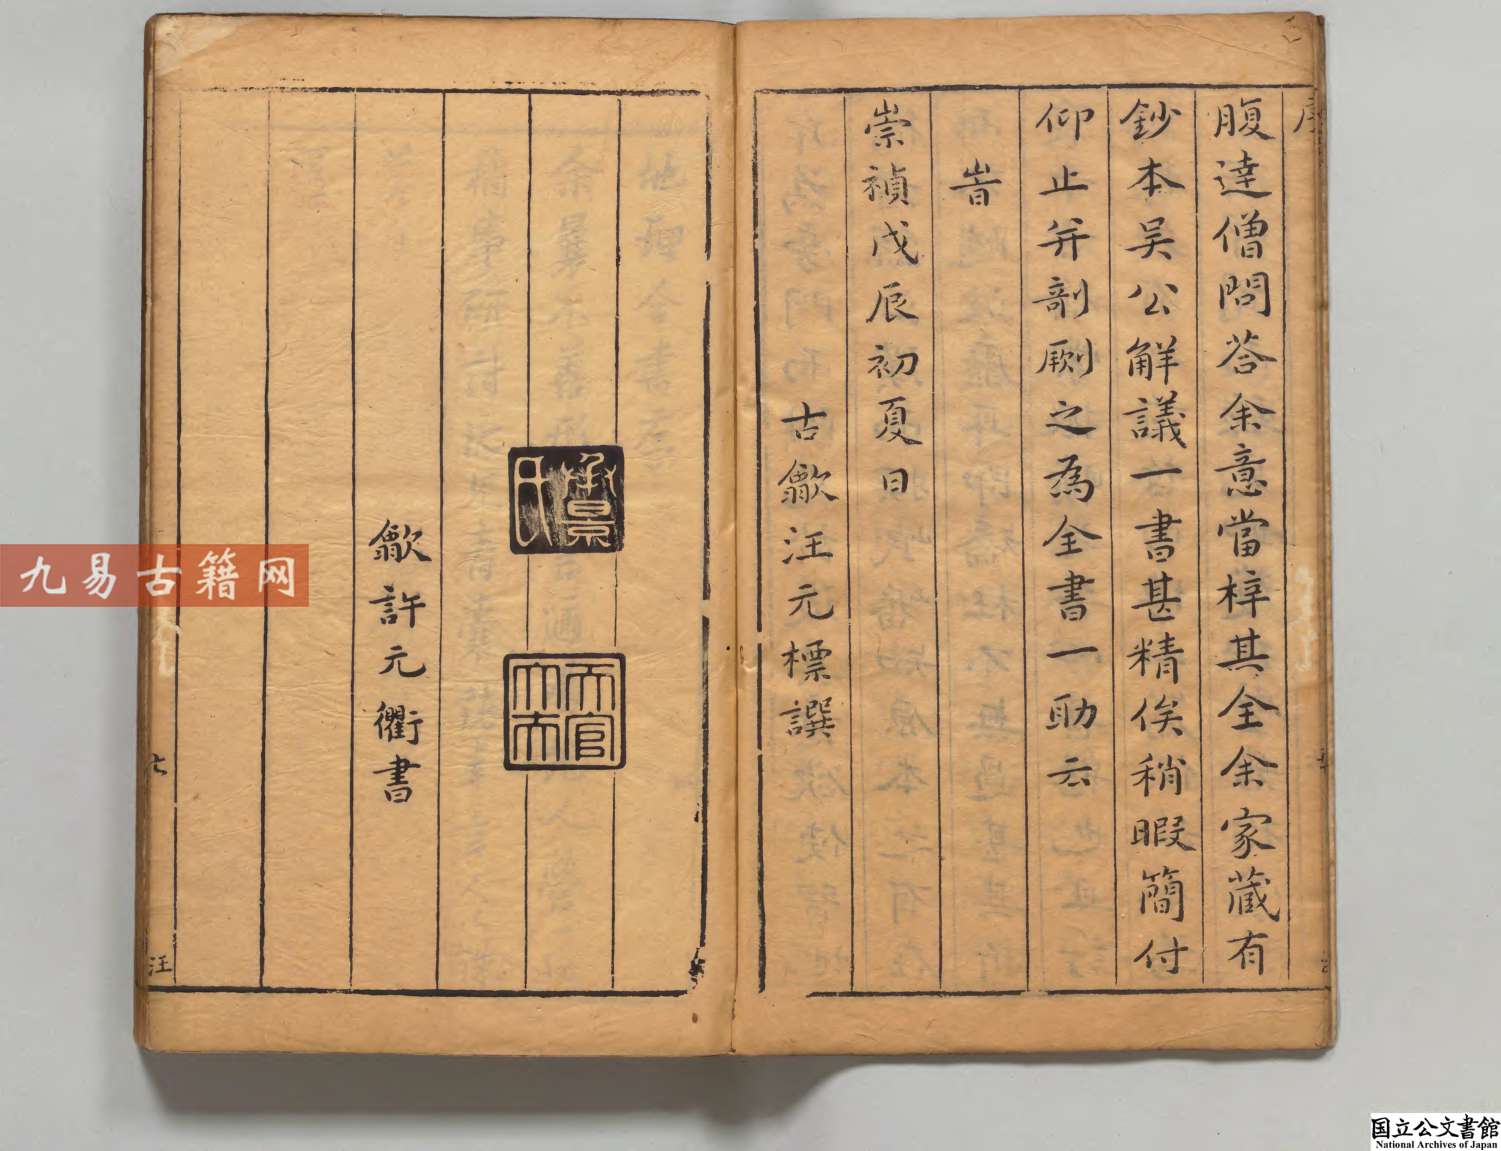 序
腹達僧問荅余意當梓其全余家藏有
鈔本吴公解議一書甚精俟稍暇簡付
仰止并剞劂之為全書一助云
旹
崇禎戊辰初夏日
古歙汪元標譔
承景氏
天官大夫
歙許元衢書
七
汪
九易古籍网
国立公文書館
National Archives of Japan